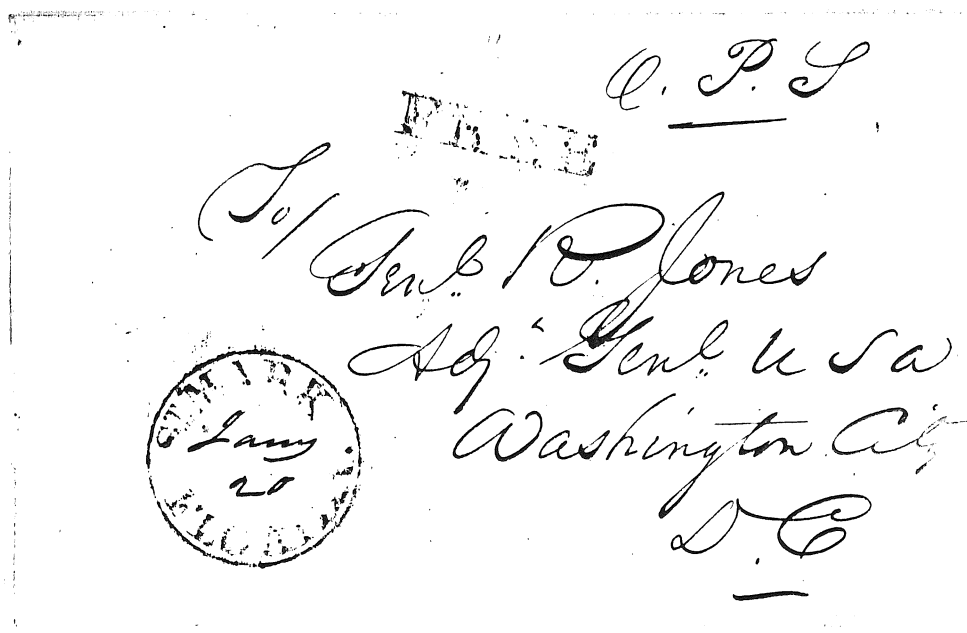 O. P. S
FREE
To/
Genl. R. Jones
Adj. Genl. U S A
Washington City
D. C
Jany
20
FLORIDA